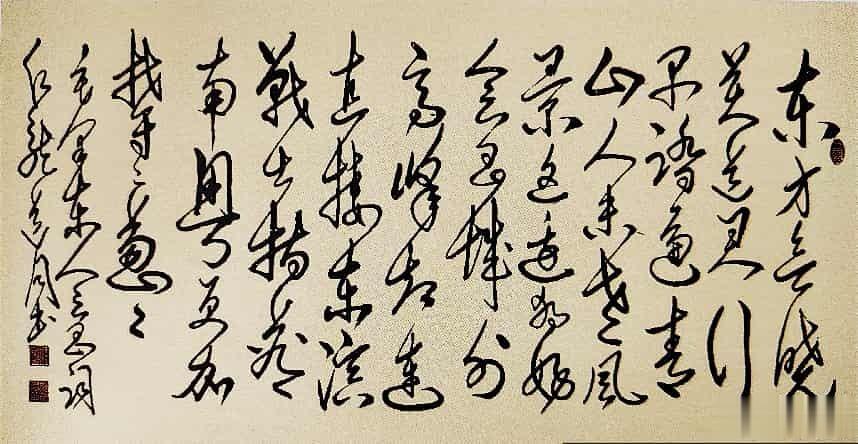 东方欲晓
莫道君行
早踏遍青
山人未老风
景这边独好
会昌城外
高峰颠连
直接东溟
战士指看
南粤更加
郁々葱々
毛泽东会昌词
书